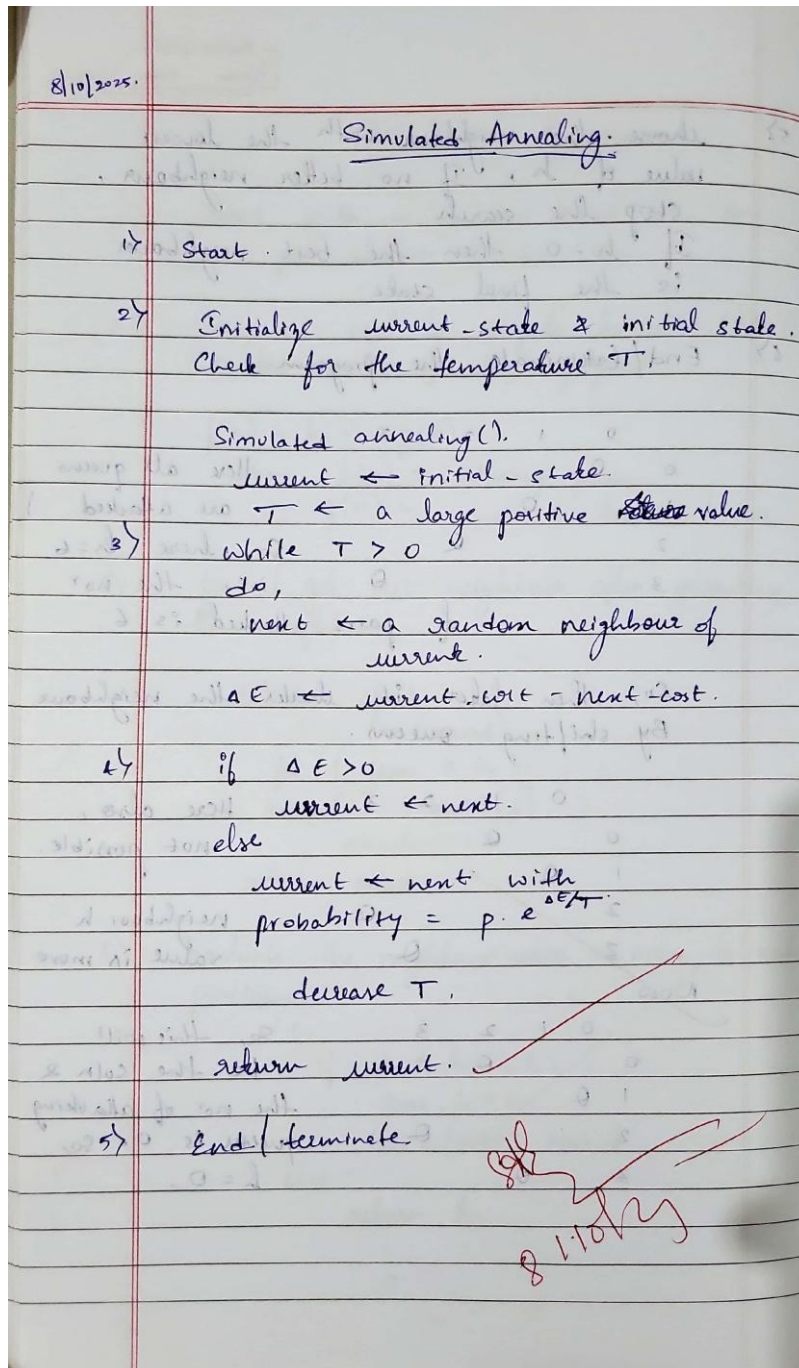 8/10/2025.
Simulated Annealing.
1) Start.
2) Initialize current-state & initial state.
Check for the temperature T.
Simulated annealing().
current ← initial-state.
T ← a large positive value.
3) while T > 0
do,
next ← a random neighbour of
current.
ΔE ← current-cost - next-cost.
4) if ΔE > 0
current ← next.
else
current ← next with
probability = p. e^ΔE/T.
decrease T.
return current.
5) End / terminate.